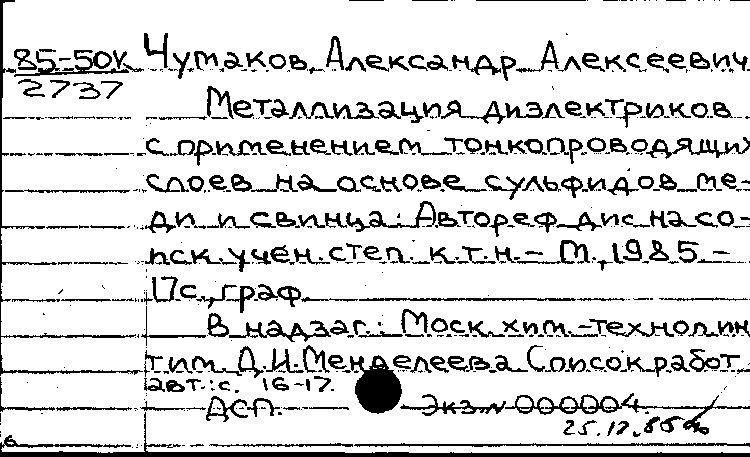 85-50к Чумаков, Александр Алексеевич
2737
Металлизация диэлектриков
с применением тонкопроводящих
слоев на основе сульфидов ме-
ди и свинца: Автореф дис на со-
иск. учен. степ. к.т.н. – М., 1985. –
17с., граф.
В надзаг.: Моск. хим.-технол ин
тим. Д.И. Менделеева Список работ
авт.: с. 16-17.
ДСП. Экз. N 000004.
25.12.85